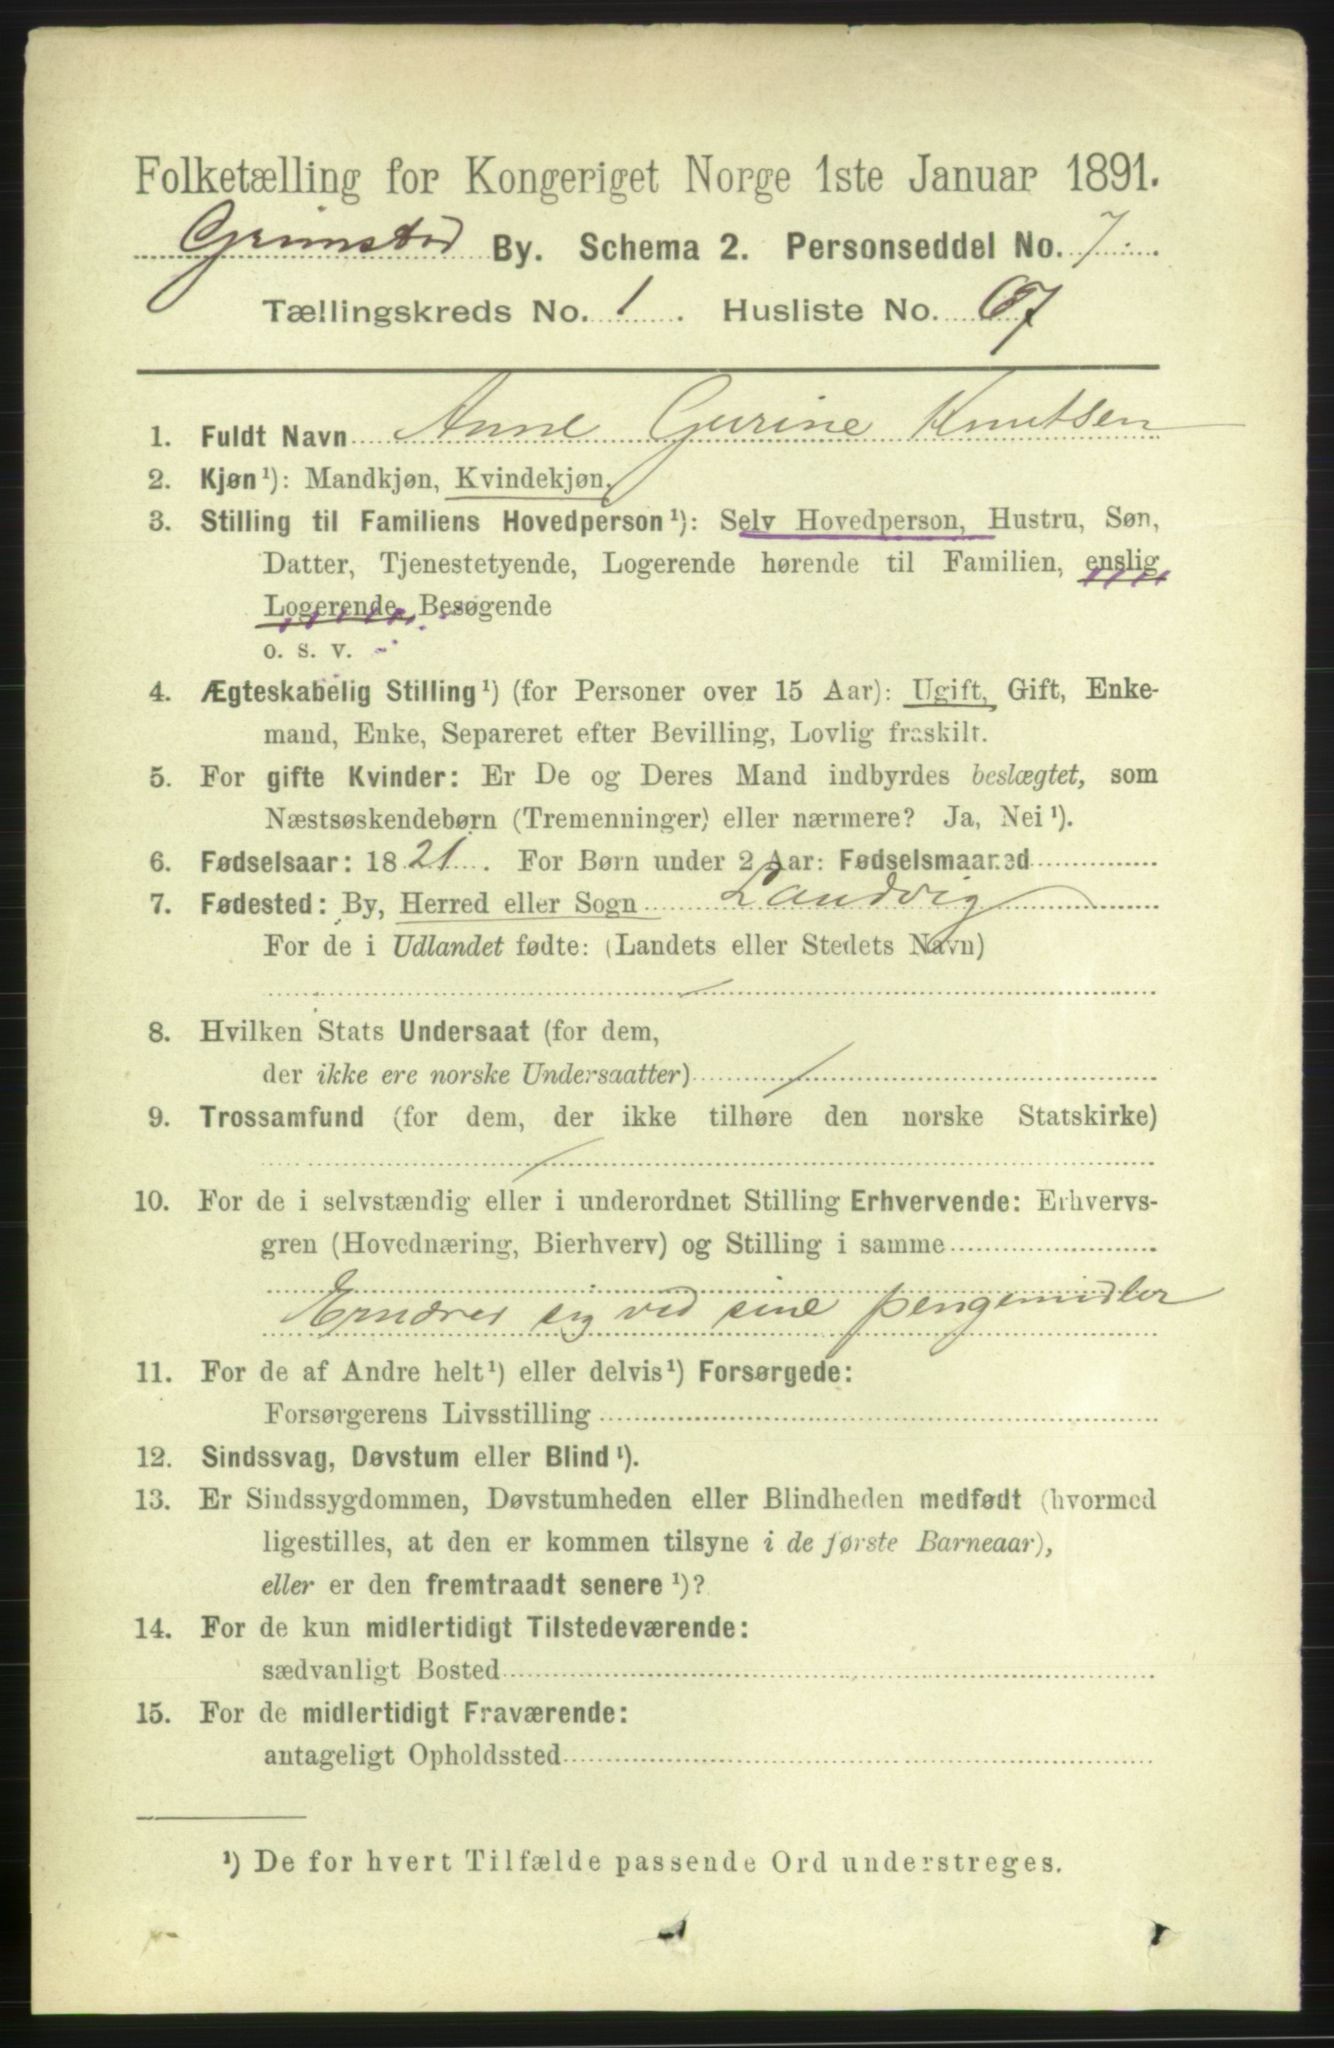 Folketælling for Kongeriget Norge 1ste Januar 1891.
Grimstad By. Schema 2. Personseddel No. 7
Tællingskreds No. 1. Husliste No. 67
1. Fuldt Navn Anne Gurine Knutsen
2. Kjøn¹): Mandkjøn, Kvindekjøn.
3. Stilling til Familiens Hovedperson¹): Selv Hovedperson, Hustru, Søn,
Datter, Tjenestetyende, Logerende hørende til Familien, enslig
Logerende, Besøgende
o. s. v.
4. Ægteskabelig Stilling¹) (for Personer over 15 Aar): Ugift, Gift, Enke-
mand, Enke, Separeret efter Bevilling, Lovlig fraskilt.
5. For gifte Kvinder: Er De og Deres Mand indbyrdes beslægtet, som
Næstsøskendebørn (Tremenninger) eller nærmere? Ja, Nei¹).
6. Fødselsaar: 1821. For Børn under 2 Aar: Fødselsmaaned
7. Fødested: By, Herred eller Sogn Landvig
For de i Udlandet fødte: (Landets eller Stedets Navn)
8. Hvilken Stats Undersaat (for dem,
der ikke ere norske Undersaatter)
9. Trossamfund (for dem, der ikke tilhøre den norske Statskirke)
10. For de i selvstændig eller i underordnet Stilling Erhvervende: Erhvervs-
gren (Hovednæring, Bierhverv) og Stilling i samme
Ernærer sig ved sine pengemidler
11. For de af Andre helt¹) eller delvis¹) Forsørgede:
Forsørgerens Livsstilling
12. Sindssvag, Døvstum eller Blind¹).
13. Er Sindssygdommen, Døvstumheden eller Blindheden medfødt (hvormed
ligestilles, at den er kommen tilsyne i de første Barneaar),
eller er den fremtraadt senere¹)?
14. For de kun midlertidigt Tilstedeværende:
sædvanligt Bosted
15. For de midlertidigt Fraværende:
antageligt Opholdssted
¹) De for hvert Tilfælde passende Ord understreges.